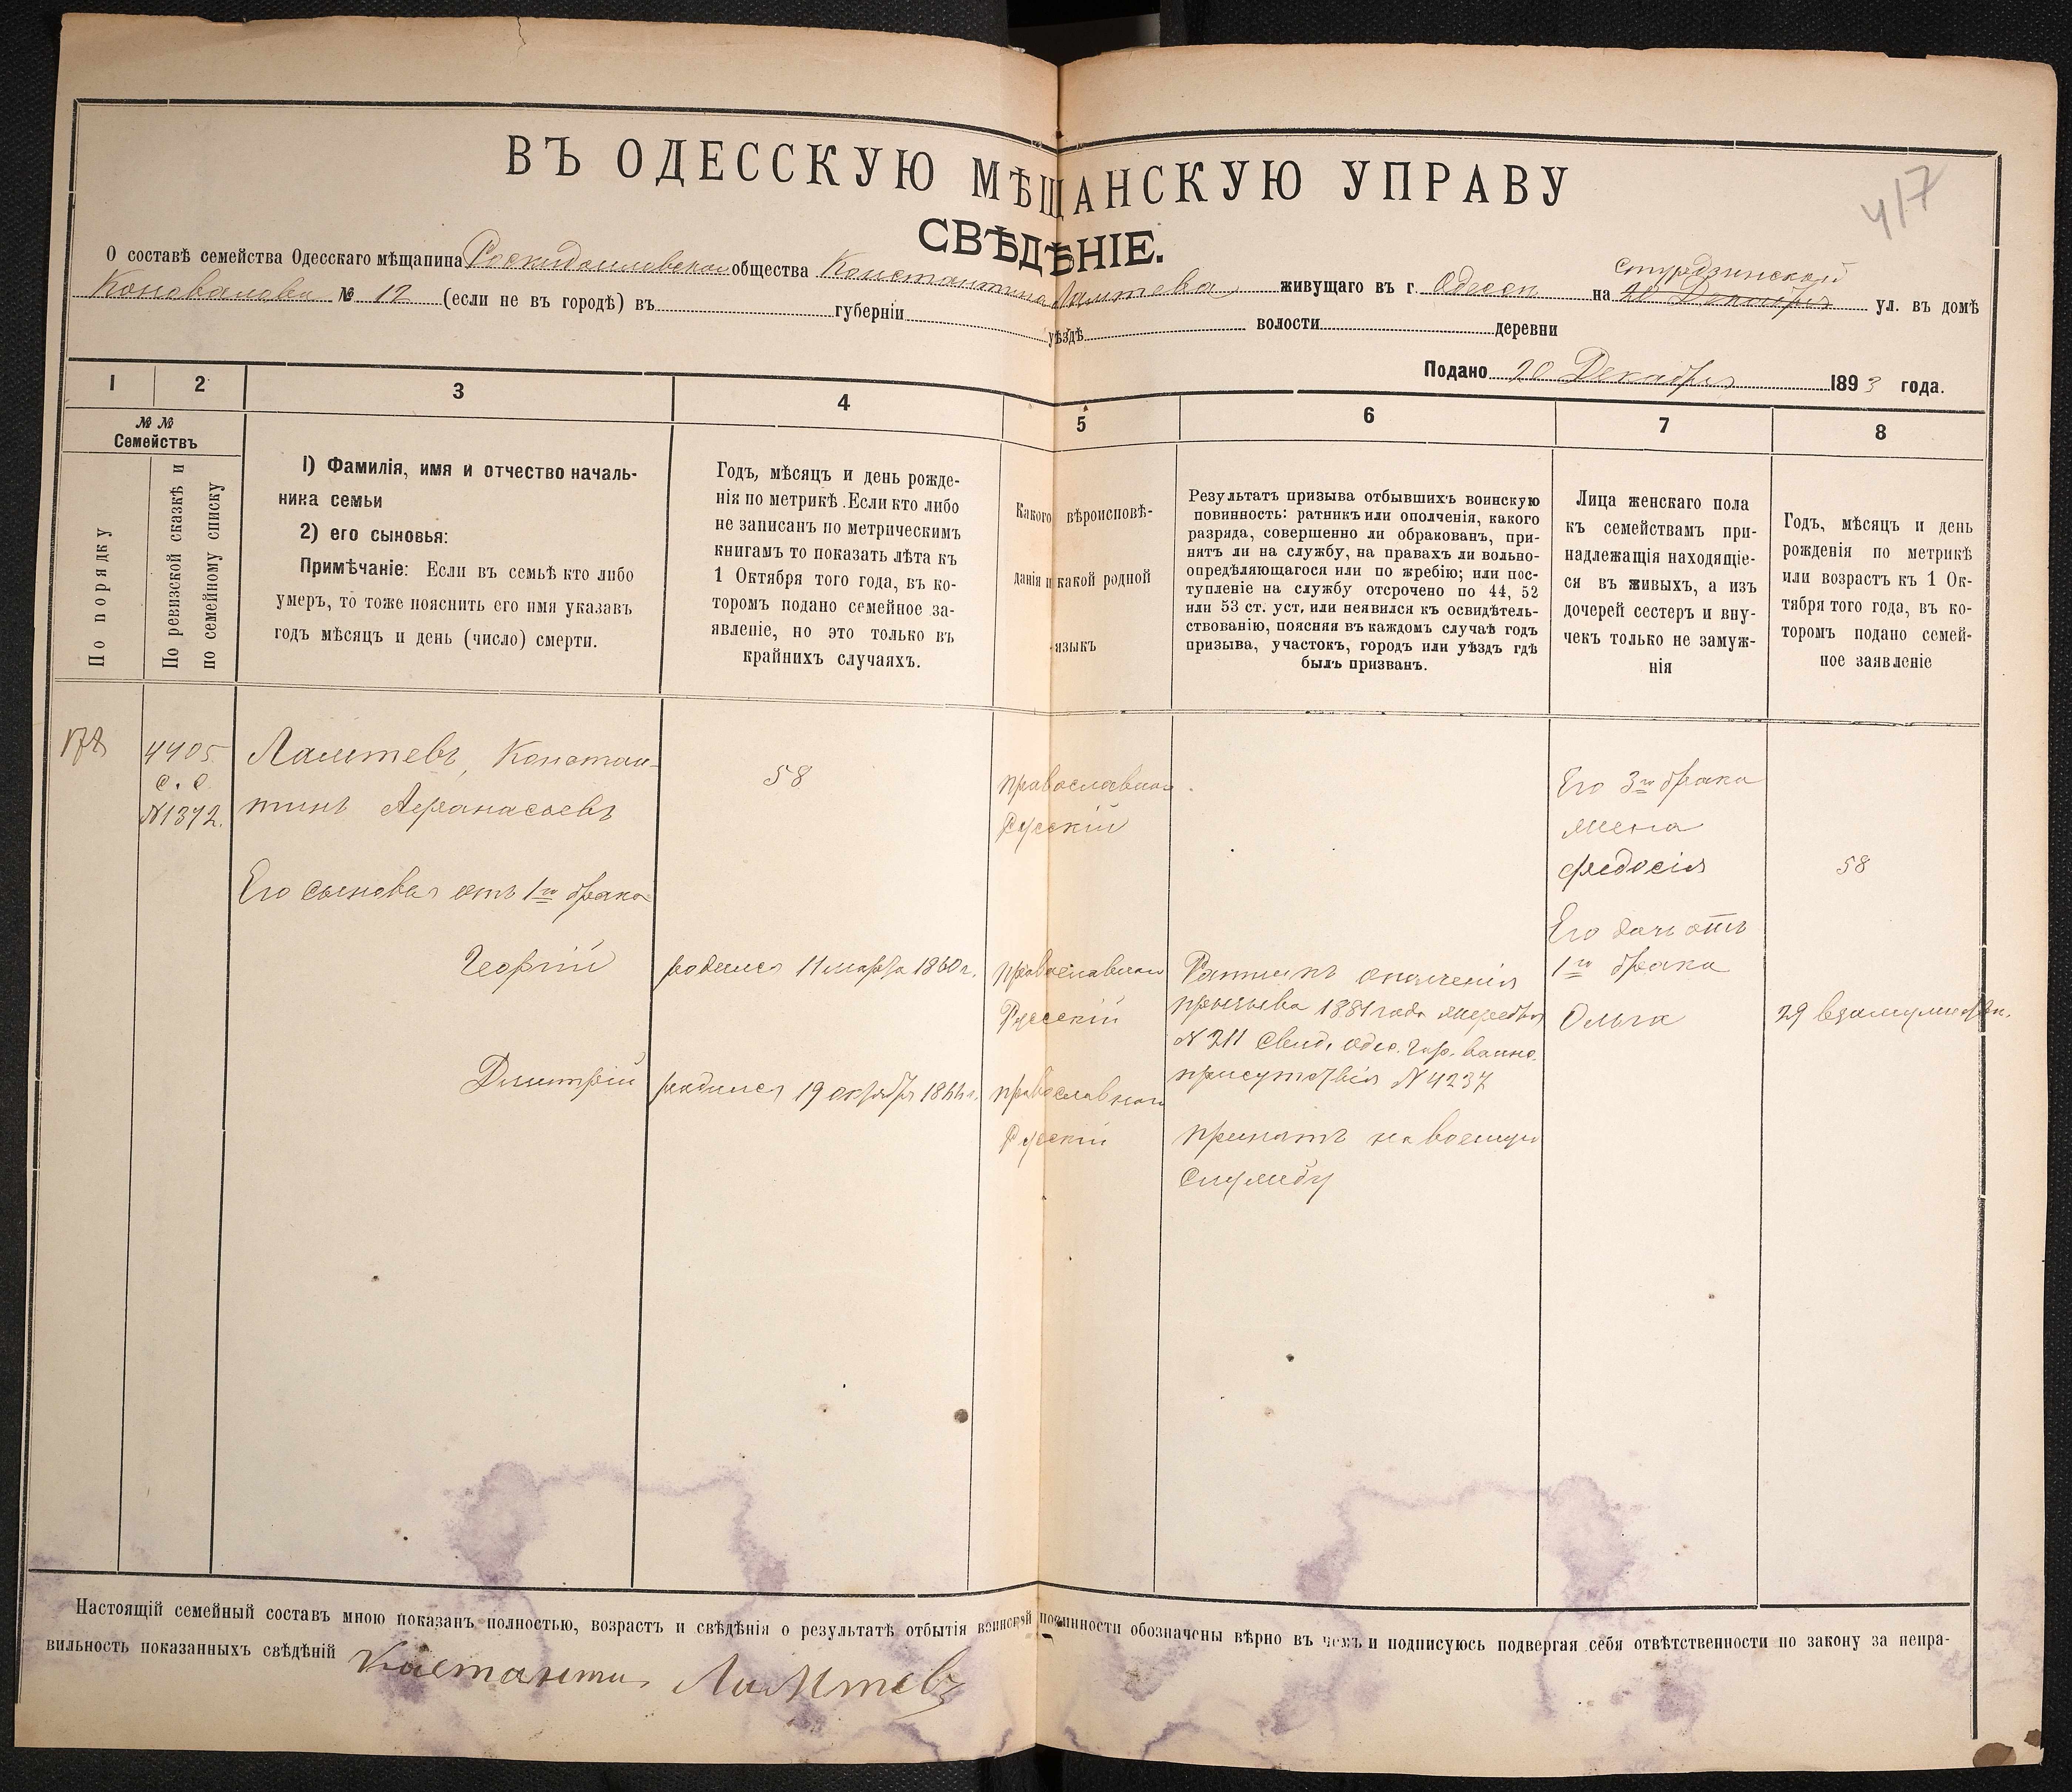 417
ВЪ ОДЕССКУЮ МѢЩАНСКУЮ УПРАВУ
СВѢДѢНІЕ.
О составѣ семейства Одесскаго мѣщанина общества Константина живущаго въ г. Одессѣ на 20 Декабря Стурдзинской ул. въ домѣ
Коновалова № 12 (если не въ городѣ) въ губерніи уѣздѣ волости деревни
Подано 20 Декабря 1893 года.
1 2 3 4 5 6 7 8
№ № Семействъ
По порядку
По ревизской сказкѣ и
по семейному списку
1) Фамилія, имя и отчество началь-
ника семьи
2) его сыновья:
Примѣчаніе: Если въ семьѣ кто либо
умеръ, то тоже пояснить его имя указавъ
годъ мѣсяцъ и день (число) смерти.
Годъ, мѣсяцъ и день рожде-
нія по метрикѣ. Если кто либо
не записанъ по метрическимъ
книгамъ то показать лѣта къ
1 Октября того года, въ ко-
торомъ подано семейное за-
явленіе, но это только въ
крайнихъ случаяхъ.
Какого вѣроисповѣ-
данія и какой родной
языкъ
Результатъ призыва отбывшихъ воинскую
повинность: ратникъ или ополченія, какого
разряда, совершенно ли обракованъ, при-
нятъ ли на службу, на правахъ ли вольно-
опредѣляющагося или по жребію; или пос-
тупленіе на службу отсрочено по 44, 52
или 53 ст. уст, или неявился къ освидѣтель-
ствованію, поясняя въ каждомъ случаѣ годъ
призыва, участокъ, городъ или уѣздъ гдѣ
былъ призванъ.
Лица женскаго пола
къ семействамъ при-
надлежащія находящіе-
ся въ живыхъ, а изъ
дочерей сестеръ и вну-
чекъ только не замуж-
нія
Годъ, мѣсяцъ и день
рожденія по метрикѣ
или возрастъ къ 1 Ок-
тября того года, въ ко-
торомъ подано семей-
ное заявленіе
178
4405
с. с.
№1372.
Константинъ Афанасьевъ
58
православнаго
Русскій
Его 3го брака
жена
Федосія
58
Его сыновья отъ 1го брака
Георгій
родился 11 марта 1860 г.
православнаго
Русскій
Ратникъ ополченія
призыва 1881 года жеребья
№ 211 Свид. Одес. гор. воинс.
присутствія № 4237
Его дочь отъ
1го брака
Ольга
29
Дмитрій
родился 19 октября 1866 г.
православнаго
Русскій
принятъ на военную
службу
Настоящій семейный составъ мною показанъ полностью, возрастъ и свѣдѣнія о результатѣ отбытія воинской повинности обозначены вѣрно въ чемъ и подписуюсь подвергая себя отвѣтственности по закону за непра-
вильность показанныхъ свѣдѣній